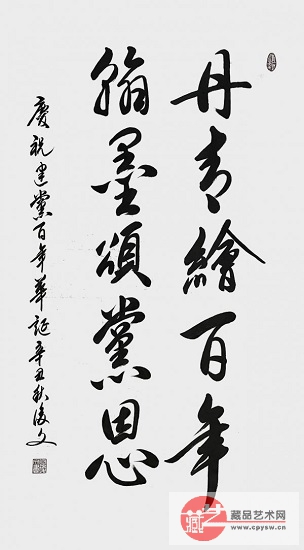 丹青繪百年
翰墨頌黨恩
慶祝建黨百年華誕辛丑秋俊文
藏品艺术网
www.cpysw.cn